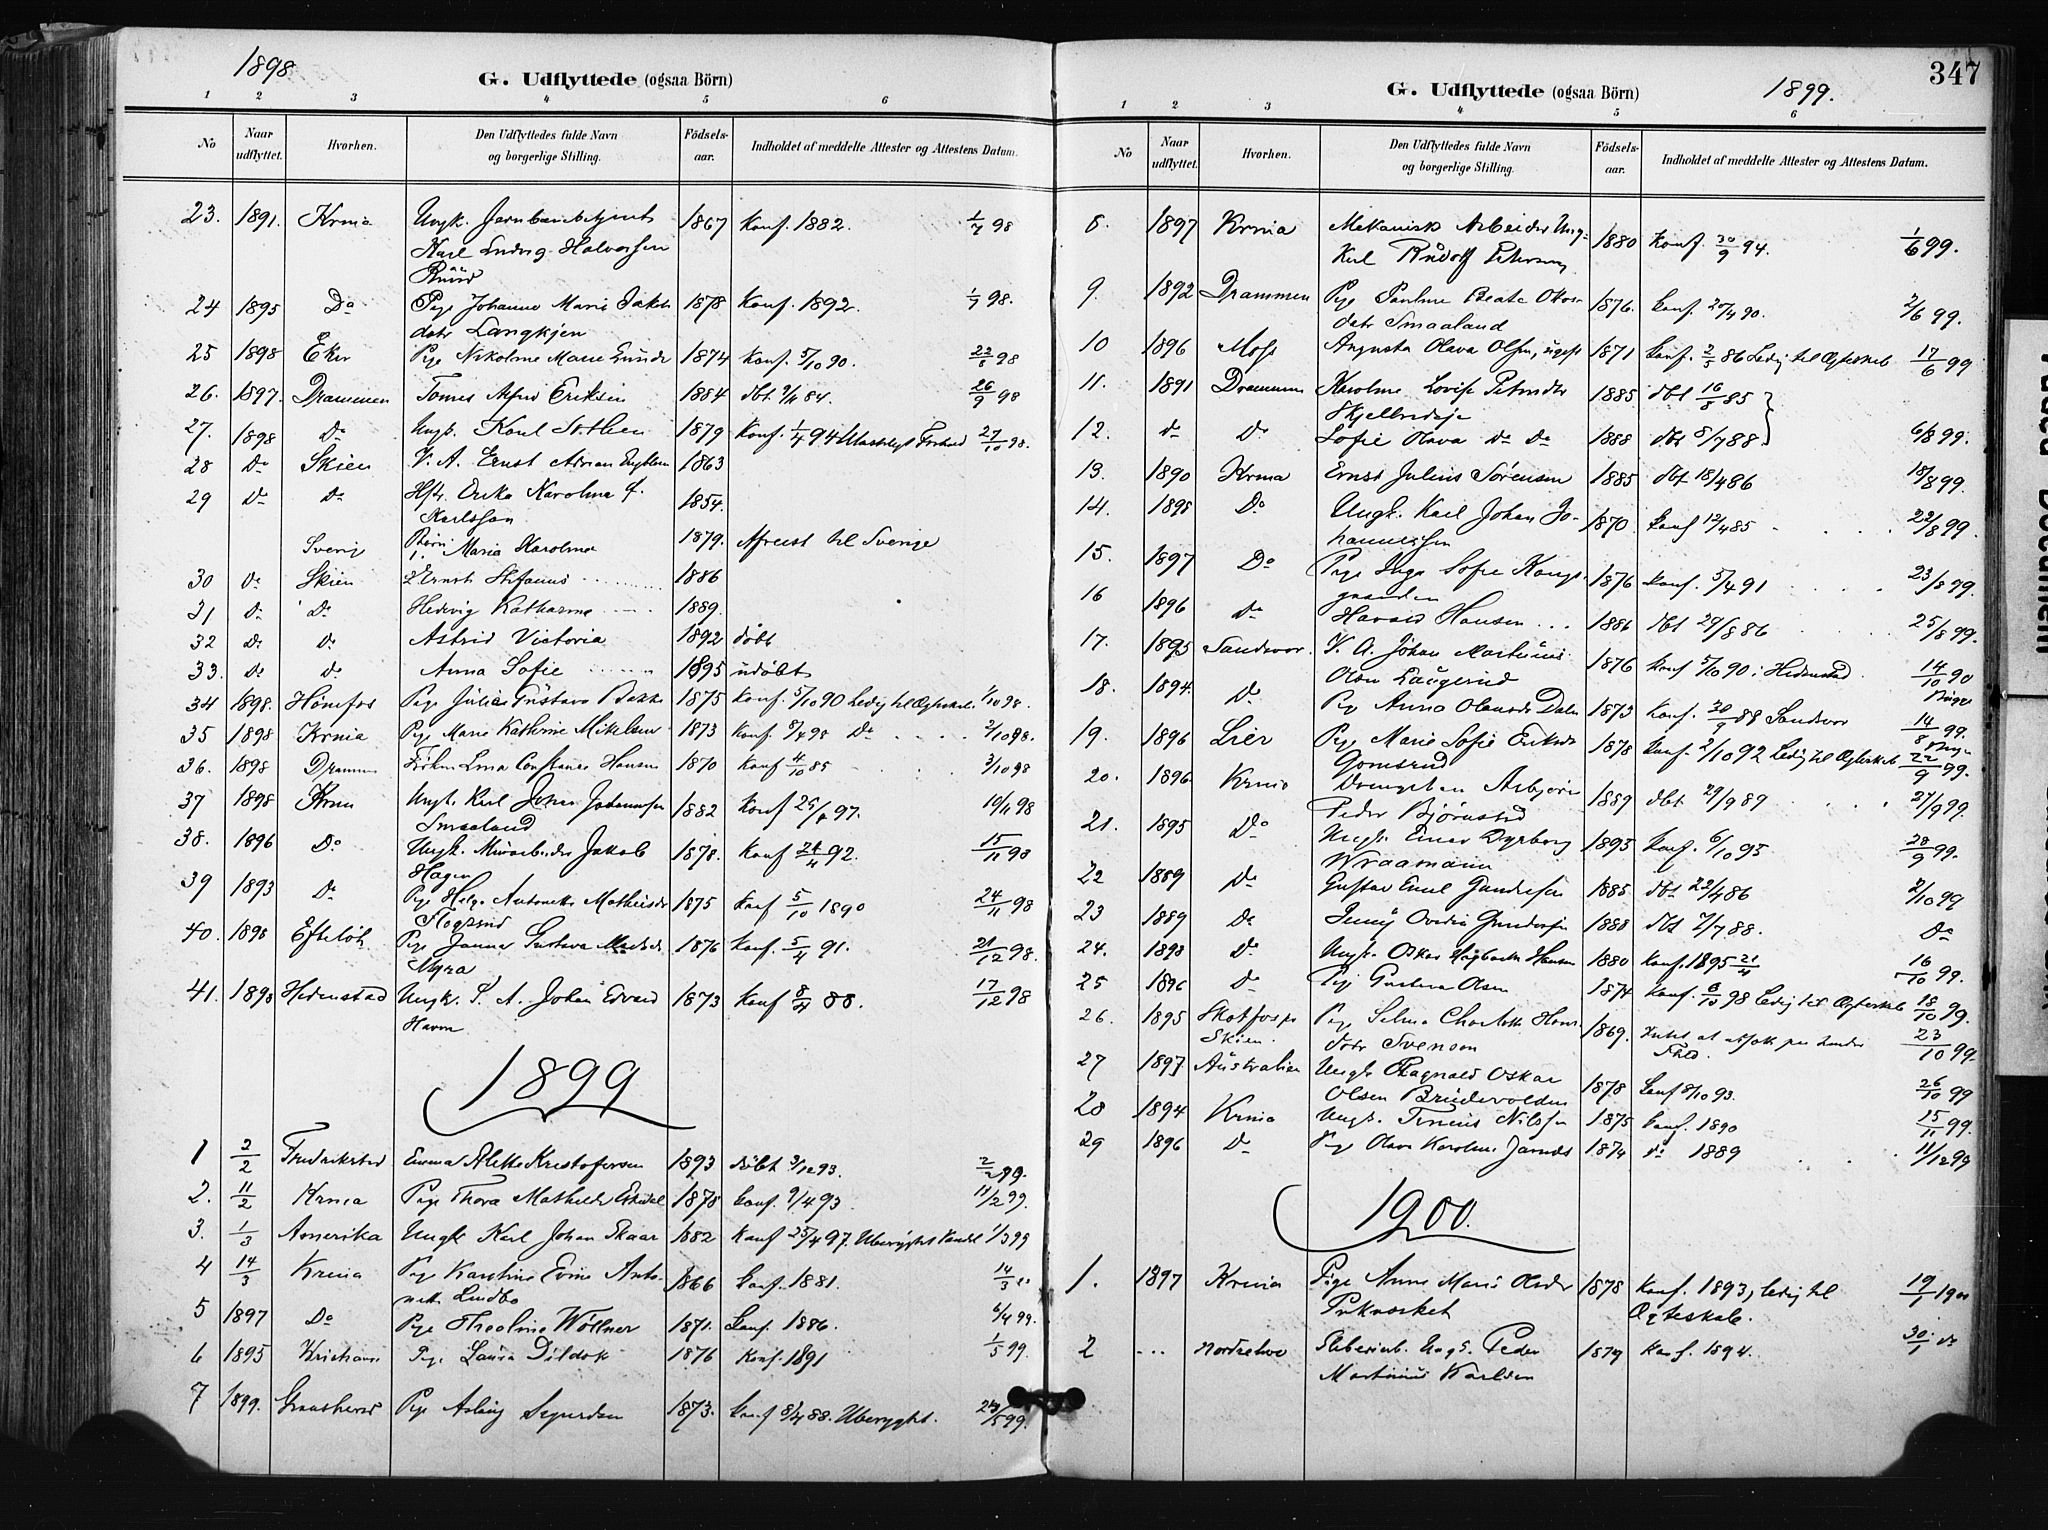 1898
G. Udflyttede (ogsaa Börn)
1 2 3 4 5 6
No Naar udflyttet. Hvorhen. Den Udflyttedes fulde Navn og borgerlige Stilling. Födsels-aar. Indholdet af meddelte Attester og Attestens Datum.
23. 1891. Krnia Ungk. 1867 Konf. 1882. 1/7 98
Karl Ludvig Halvorsen
24 1895 Do Pige Johanne Marie 1878 Konf. 1892. 1/9 98.
datr Langkjen
25 1898 Eker Pige Nikoline Marie 1874 Konf. 5/10 90. 98
26. 1897. Drammen Tomes Alfred Eriksen 1884 dbt. 84. 26/9 98
27. 1898 Do Ungk. Karl 1879 Konf. 1/4 94 27/10 98.
28 Do Skien V. A. Ernst Adrian 1863
29 Do Do Hstr. Erika Karolina f. 1854.
Karlsson
Sverig Börn 1. Maria Karolina 1879. Afreist til Sverige
30 Do Skien Ernst Stefanus 1886
31 Do Do Hedvig Katharina 1889.
32 Do Do Astrid Victoria 1892 döbt
33. Do Do Anna Sofie 1895 udöbt
34 1898. Hönefos Pige Julie Gustava Bakke 1875 Konf. 5/10 90 Ledig til Ægteskab. 1/10 98.
35 1898 Krnia Pige Marie Kathrine Mikelsen 1873 Konf. Do 2/10 98.
36. 1898 Drammen Lina Constance Hansen 1870 Konf 4/10 85 3/10 98
37 1898 Krnia Ungk. Karl Johan Johannesen 1882 Konf 25/4 97. 10/11 98
Smaaland
38. 1896 Do Ungk. Jakob 1878. Konf 24/4 92. 15/11 98
Hagen
39 1893 Do Pige Helga Antonette Mathisdr 1875 Konf 5/10 1890 24/11 98
40. 1898 Efteløt Pige Gustava 1876 Konf. 5/4 91. 21/12 98.
Myra
41. 1898 Hedenstad Ungk. Johan Edvard 1873 Konf 8/4 88. 17/12 98
Havn
1899
1 2/2 Fredrikstad Emma Alette Kristofersen 1893 döbt 3/12 93. 2/2 99.
2. 11/2 Krnia Pige Thora Mathilde 1878 Conf. 9/4 93. 11/2 99.
3. 1/3 Amerika Ungk Karl Johan Skaar 1882 Konf 25/4 97. Uberygtet Vandel 1/3 99
4 14/3 Krnia Pige Karoline Evine Anto- 1866 Conf. 1881. 14/3 "
nette Lindbo
5 1897 Do Pige Theoline Wöllner 1871. Conf. 1886. 6/4 99.
6 1895 Kristiania Pige Laura Dildok 1876 Konf. 1891 1/5 99.
7 1899. Gransherad Pige Aslaug Sigurdsen 1873. Conf 8/4 88. Uberygtet. 99.
347
G. Udflyttede (ogsaa Börn) 1899.
1 2 3 4 5 6
No Naar udflyttet. Hvorhen. Den Udflyttedes fulde Navn og borgerlige Stilling. Födsels-aar. Indholdet af meddelte Attester og Attestens Datum.
8. 1897 Krnia Mekanisk Arbeider Ung- 1880 Konf. 30/9 94. 1/6 99.
Karl Rudolf Petersen
9. 1892 Drammen Pige Pauline Beate 1876. Conf. 20/4 90. 2/6 99.
datr Smaaland
10 1896 Moss Augusta Olava Olsen, ugift 1871 Conf. 2/5 86 Ledig til Ægteskab 17/6 99
11. 1891 Drammen Karoline Lovise 1885 dbt 85
12. do Do Sofie Olava do do 1888 dbt 8/7 88 6/8 99.
13. 1890 Krnia Ernst Julius Sörensen 1885 dbt 18/4 86 18/8 99.
14. 1898 Do Ungk. Karl Johan Jo- 1870 Conf 12/4 85 22/8 99.
hannessen
15. 1897 Do Pige Inga Sofie Kongs- 1876 Konf. 5/4 91 23/8 99.
16 1896 Do Harald Hansen 1886 dbt 29/8 86 25/8 99.
17. 1895 Sandsvær. V. A. Johan Martinius 1876 Konf 5/10 90 i Hedenstad 14/10 90
Olsen
18. 1894. Do Pige Anna 1873 Konf. 88 Sandsvær 14/8 99.
19. 1896 Lier Pige Marie Sofie Eriksdr 1878 Conf. 2/10 92 Ledig til Ægteskab 22/9 99.
Gomsrud
20. 1896 Krnia Drengebarn Asbjörn 1889 dbt 29/9 89 27/9 99.
Peder Björnstad
21. 1895 Do Ungk. Einar Dyrborg 1893 Conf. 6/10 95 28/9 99.
Wraamann
22 1889 Do Gustav Emil Gundersen 1885 dbt 22/4 86 2/10 99
23 1889 Do Jenny Ovidia Gundersen 1888 dbt 88. Do
24. 1898 Do Ungk. Oskar Hansen 1880 Konf. 1895 21/4 16/10 99.
25 1896 Do Pige Gustava Olsen 1874 Konf. 98 Ledig til Ægteskab 18/10 99.
26. 1895 Skotfos pr Pige Selma Charlotte Hans- 1869. 23/10 99.
Skien. dotr Svenson
27 1897 Australien Ungk Ragnald Oskar 1878 Conf 8/10 93. 26/10 99
Olsen
28 1894 Krnia Ungk. Nilssen 1875 Conf. 1890 15/11 99.
29 1896 Do Pige Olava Karoline 1874 do 1889 11/12 99
1900.
1. 1897 Krnia Pige Anne Marie Olsdr 1878 Konf. 1893, ledig til 19/1 1900
Pukverket Ægteskab.
2 ... Nordrehov Ungk. Peder 1879 Konf. 1894. 30/1 do
Martinius Karlsen